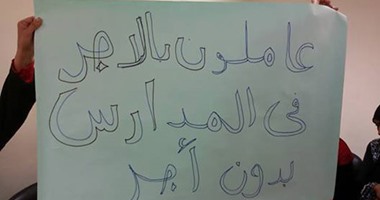 عاملون بالاجر
فى المدارس
بدون أجر